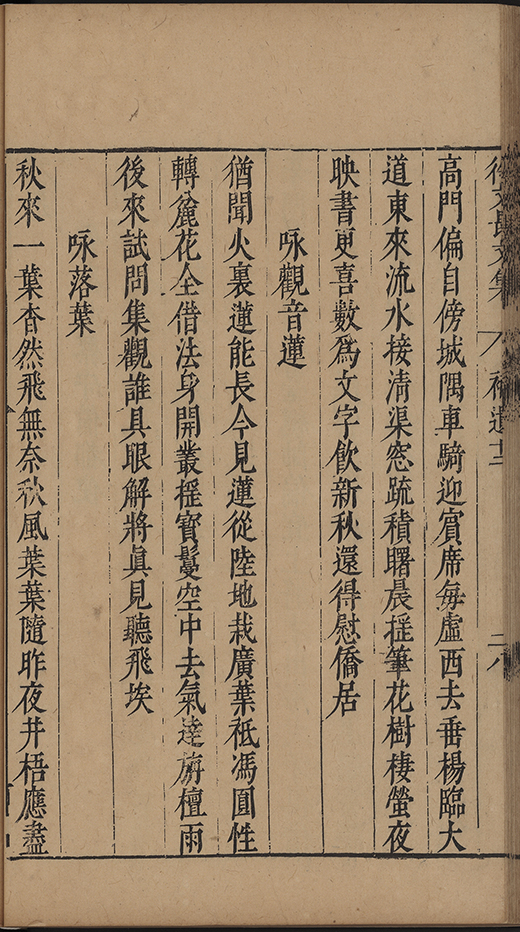 徐文長文集
高門偏自傍城隅車騎迎賓席毎虛西去垂楊臨大
道東來流水接淸渠窓疏積曙晨揺筆花樹棲螢夜
映書更喜數爲文字飲新秋還得慰僑居
咏觀音蓮
猶聞火裏蓮能長今見蓮從陸地栽廣葉祗馮圓性
轉麄花全借法身開叢揺寳鬘空中去氣達旃檀雨
後來試問集觀誰具眼解將眞見聽飛埃
咏落葉
秋來一葉杳然飛無奈秋風葉葉隨昨夜井梧應盡